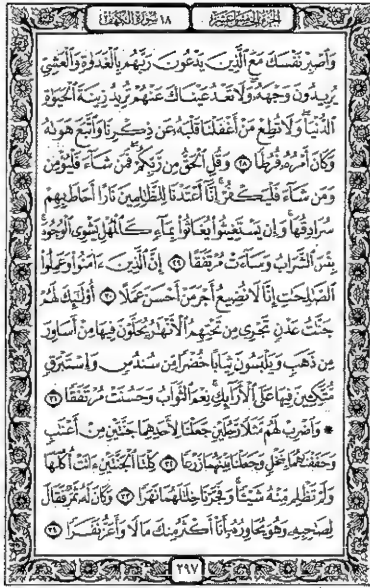 الجزء الخامس عشر ١٨ سورة الكهف
وَاصْبِرْ نَفْسَكَ مَعَ الَّذِينَ يَدْعُونَ رَبَّهُم بِالْغَدَوٰةِ وَالْعَشِيِّ
يُرِيدُونَ وَجْهَهُ وَلَا تَعْدُ عَيْنَاكَ عَنْهُمْ تُرِيدُ زِينَةَ الْحَيَوٰةِ
الدُّنْيَا وَلَا تُطِعْ مَنْ أَغْفَلْنَا قَلْبَهُ عَن ذِكْرِنَا وَاتَّبَعَ هَوَىٰهُ
وَكَانَ أَمْرُهُ فُرُطًا ٢٨ وَقُلِ الْحَقُّ مِن رَّبِّكُمْ فَمَن شَاءَ فَلْيُؤْمِن
وَمَن شَاءَ فَلْيَكْفُرْ إِنَّا أَعْتَدْنَا لِلظَّالِمِينَ نَارًا أَحَاطَ بِهِمْ
سُرَادِقُهَا وَإِن يَسْتَغِيثُوا يُغَاثُوا بِمَاءٍ كَالْمُهْلِ يَشْوِي الْوُجُوهَ
بِئْسَ الشَّرَابُ وَسَاءَتْ مُرْتَفَقًا ٢٩ إِنَّ الَّذِينَ ءَامَنُوا وَعَمِلُوا
الصَّالِحَاتِ إِنَّا لَا نُضِيعُ أَجْرَ مَنْ أَحْسَنَ عَمَلًا ٣٠ أُولَٰئِكَ لَهُمْ
جَنَّاتُ عَدْنٍ تَجْرِي مِن تَحْتِهِمُ الْأَنْهَارُ يُحَلَّوْنَ فِيهَا مِنْ أَسَاوِرَ
مِن ذَهَبٍ وَيَلْبَسُونَ ثِيَابًا خُضْرًا مِّن سُندُسٍ وَإِسْتَبْرَقٍ
مُّتَّكِئِينَ فِيهَا عَلَى الْأَرَائِكِ نِعْمَ الثَّوَابُ وَحَسُنَتْ مُرْتَفَقًا ٣١
* وَاضْرِبْ لَهُم مَّثَلًا رَّجُلَيْنِ جَعَلْنَا لِأَحَدِهِمَا جَنَّتَيْنِ مِنْ أَعْنَابٍ
وَحَفَفْنَاهُمَا بِنَخْلٍ وَجَعَلْنَا بَيْنَهُمَا زَرْعًا ٣٢ كِلْتَا الْجَنَّتَيْنِ ءَاتَتْ أُكُلَهَا
وَلَمْ تَظْلِم مِّنْهُ شَيْئًا وَفَجَّرْنَا خِلَالَهُمَا نَهَرًا ٣٣ وَكَانَ لَهُ ثَمَرٌ فَقَالَ
لِصَاحِبِهِ وَهُوَ يُحَاوِرُهُ أَنَا أَكْثَرُ مِنكَ مَالًا وَأَعَزُّ نَفَرًا ٣٤
٢٩٧